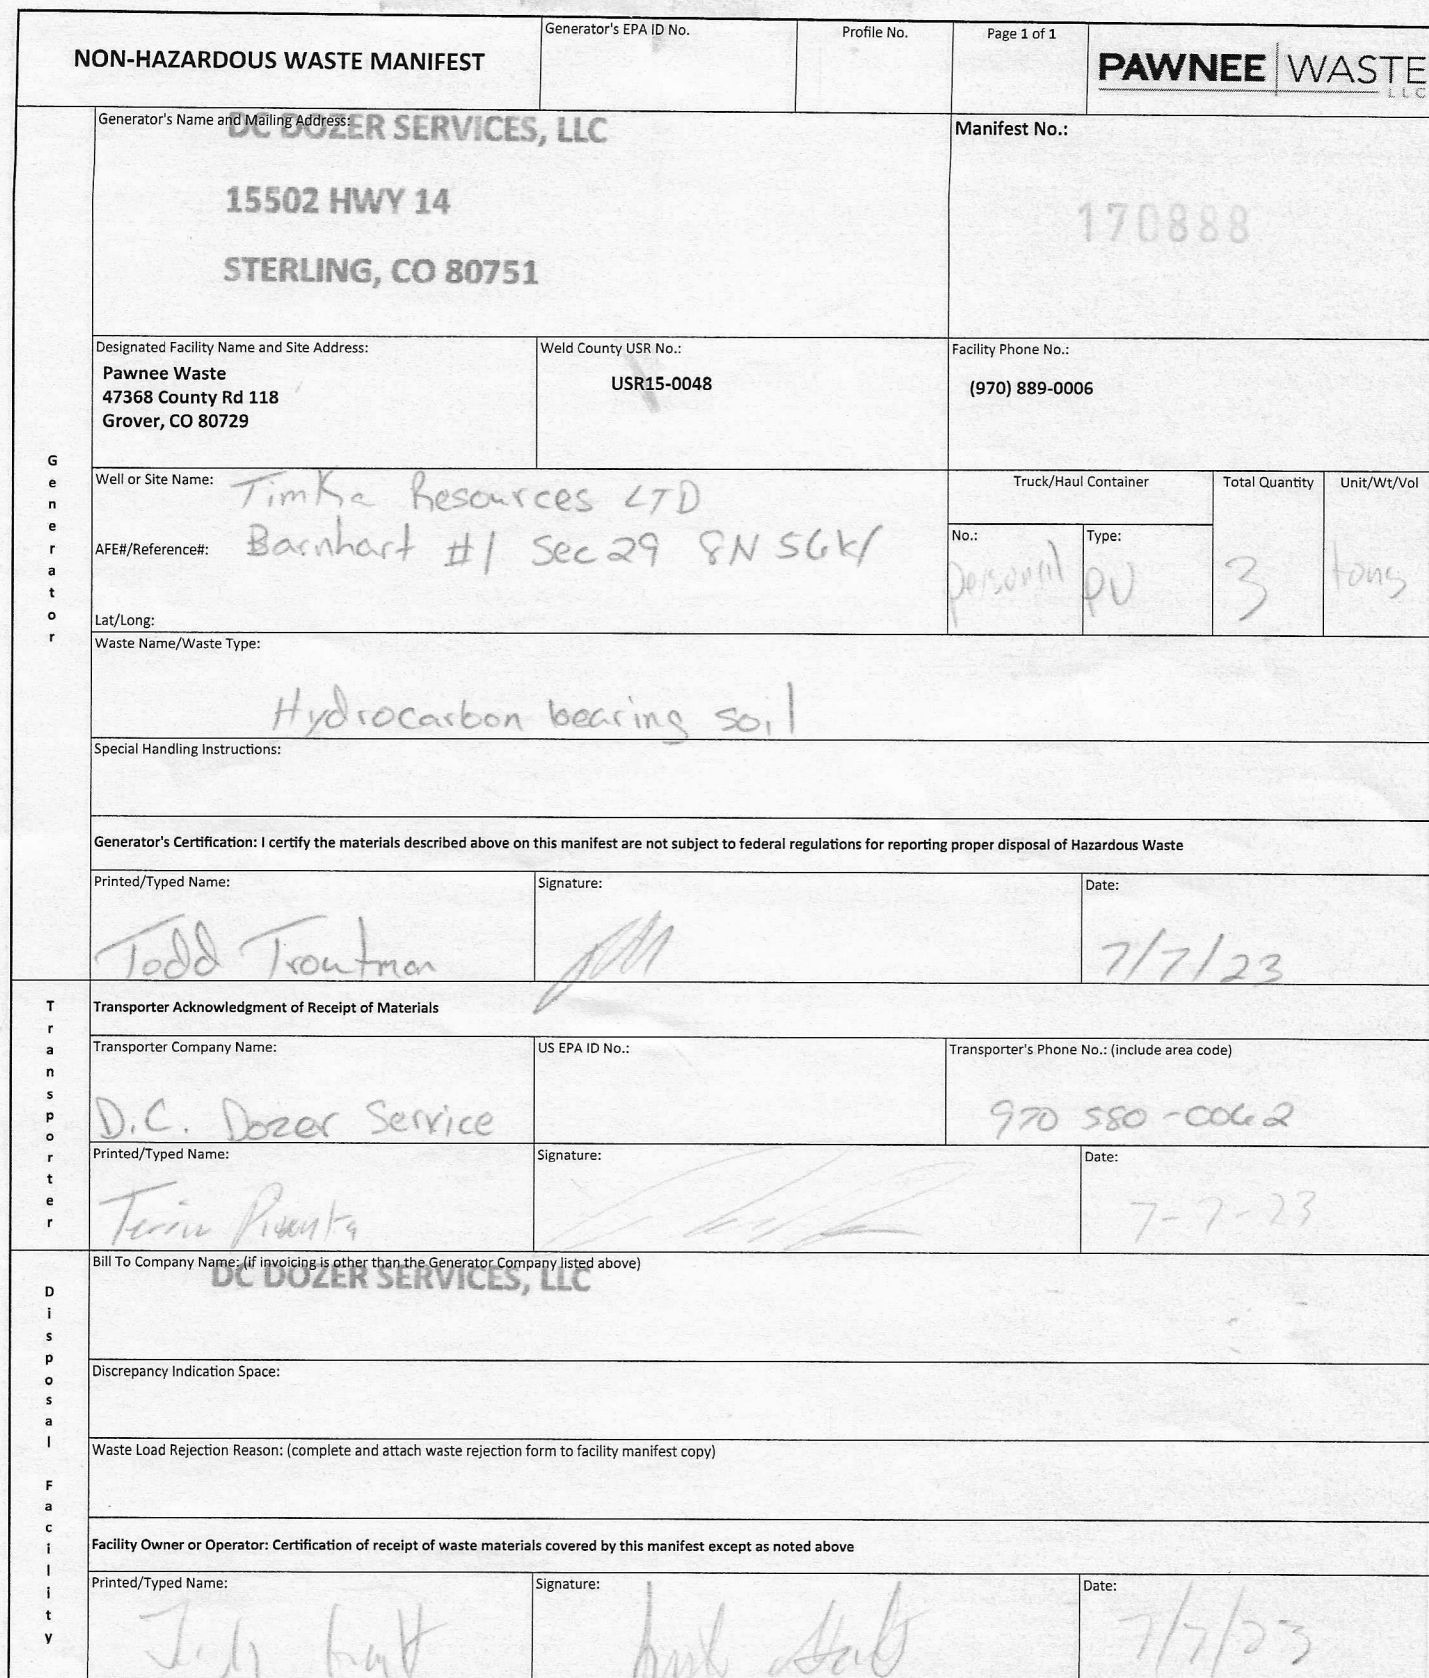 NON-HAZARDOUS WASTE MANIFEST
Generator's EPA ID No.
Profile No.
Page 1 of 1
PAWNEE WASTE
LLC
Generator's Name and Mailing Address:
DC DOZER SERVICES, LLC
15502 HWY 14
STERLING, CO 80751
Manifest No.:
170888
Generator
Designated Facility Name and Site Address:
Pawnee Waste
47368 County Rd 118
Grover, CO 80729
Weld County USR No.:
USR15-0048
Facility Phone No.:
(970) 889-0006
Well or Site Name: Timka Resources LTD
AFE#/Reference#: Barnhart #1 Sec 29 8N 56W
Lat/Long:
Truck/Haul Container
No.:
personal
Type:
PU
Total Quantity
3
Unit/Wt/Vol
tons
Waste Name/Waste Type:
Hydrocarbon bearing soil
Special Handling Instructions:
Generator's Certification: I certify the materials described above on this manifest are not subject to federal regulations for reporting proper disposal of Hazardous Waste
Printed/Typed Name:
Todd Troutman
Signature:
Date:
7/7/23
Transporter
Transporter Acknowledgment of Receipt of Materials
Transporter Company Name:
D.C. Dozer Service
US EPA ID No.:
Transporter's Phone No.: (include area code)
970 580-0062
Printed/Typed Name:
Signature:
Date:
7-7-23
Disposal Facility
Bill To Company Name: (if invoicing is other than the Generator Company listed above)
DC DOZER SERVICES, LLC
Discrepancy Indication Space:
Waste Load Rejection Reason: (complete and attach waste rejection form to facility manifest copy)
Facility Owner or Operator: Certification of receipt of waste materials covered by this manifest except as noted above
Printed/Typed Name:
Signature:
Date:
7/7/23